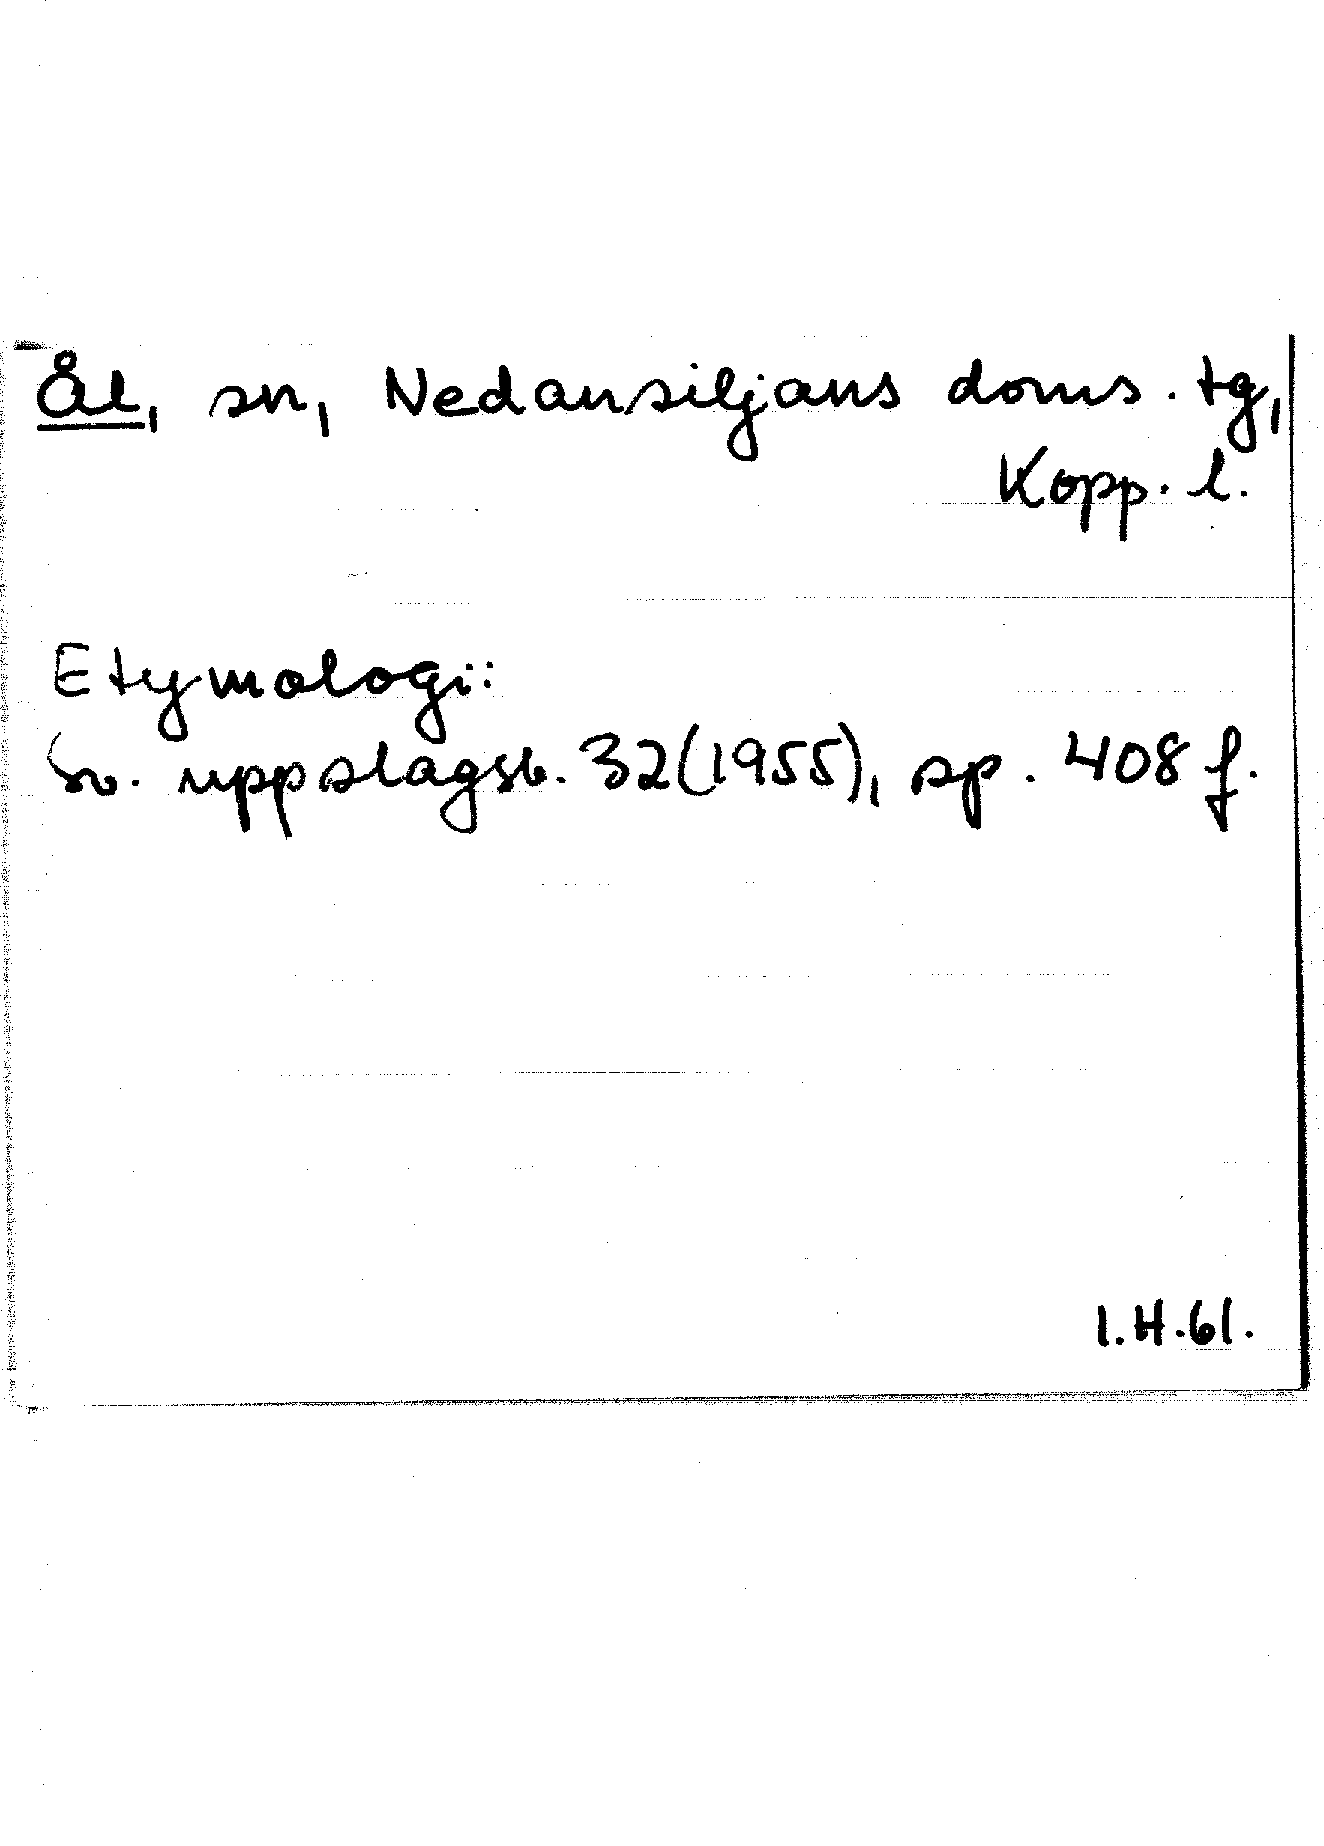 Ål, sn, Nedansiljans doms. tg,
Kopp. l.
Etymologi:
Sv. uppslagsb. 32(1955), sp. 408 f.
I.H.61.